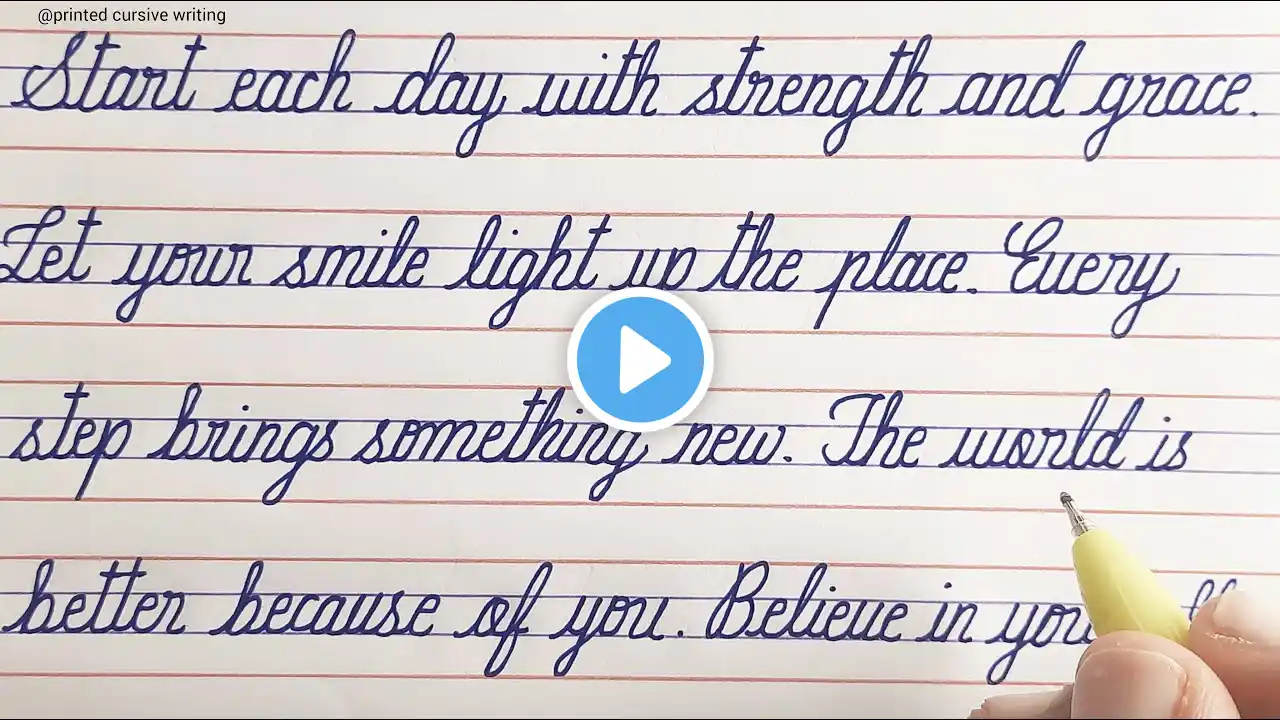 @printed cursive writing
Start each day with strength and grace.
Let your smile light up the place. Every
step brings something new. The world is
better because of you. Believe in